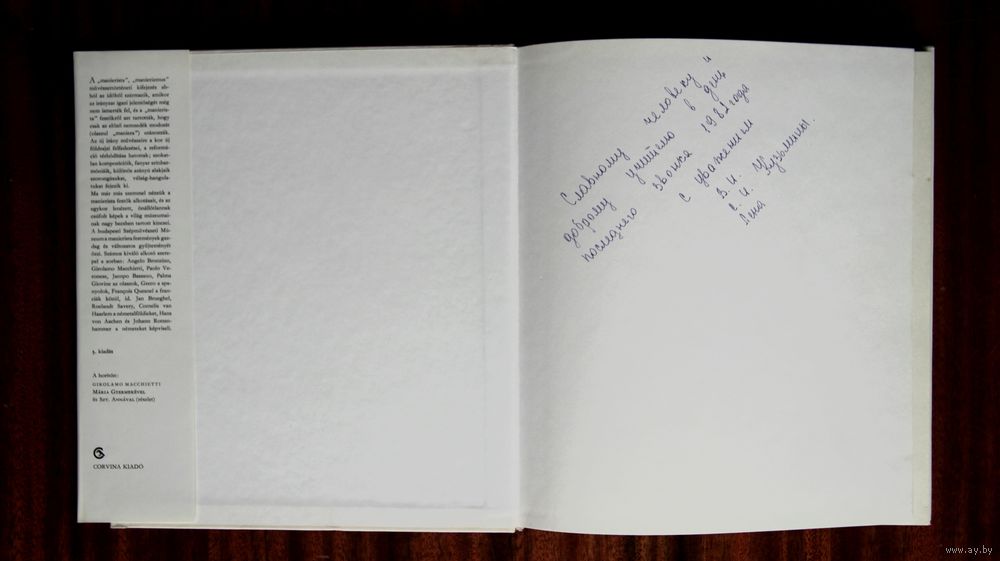 A „manierista", „manierizmus"
művészettörténeti kifejezés ab-
ból az időből származik, amikor
az irányzat igazi jelentőségét még
nem ismerték fel, és a „manieris-
ta" festőkről azt tartották, hogy
csak az előző nemzedék modorát
(olaszul „maniera") utánozták.
Az új irány művészeire a kor új
földrajzi felfedezései, a reformá-
ció térhódítása hatottak; szokat-
lan kompozícióik, fanyar színhar-
móniáik, különös arányú alakjaik
szorongásukat, válság-hangula-
tukat fejezik ki.
Ma már más szemmel nézzük a
manierista festők alkotásait, és az
egykor lenézett, önállótlannak
csúfolt képek a világ múzeumai-
nak nagy becsben tartott kincsei.
A budapesti Szépművészeti Mú-
zeum a manierista festmények gaz-
dag és változatos gyűjteményét
őrzi. Számos kiváló alkotó szere-
pel a sorban: Angelo Bronzino,
Girolamo Macchietti, Paolo Ve-
ronese, Jacopo Bassano, Palma
Giovine az olaszok, Greco a spa-
nyolok, François Quesnel a fran-
ciák közül, id. Jan Brueghel,
Roelandt Savery, Cornelis van
Haarlem a németalföldieket, Hans
von Aachen és Johann Rotten-
hammer a németeket képviseli.
5. kiadás
A borítón:
GIROLAMO MACCHIETTI
MÁRIA GYERMEKÉVEL
ÉS SZT. ANNÁVAL (részlet)
CORVINA KIADÓ
Славному человеку и
доброму учителю в день
последнего звонка 1982 года
с уважением
В. И. У
Е. И. Кузьмины.
Лена
www.ay.by